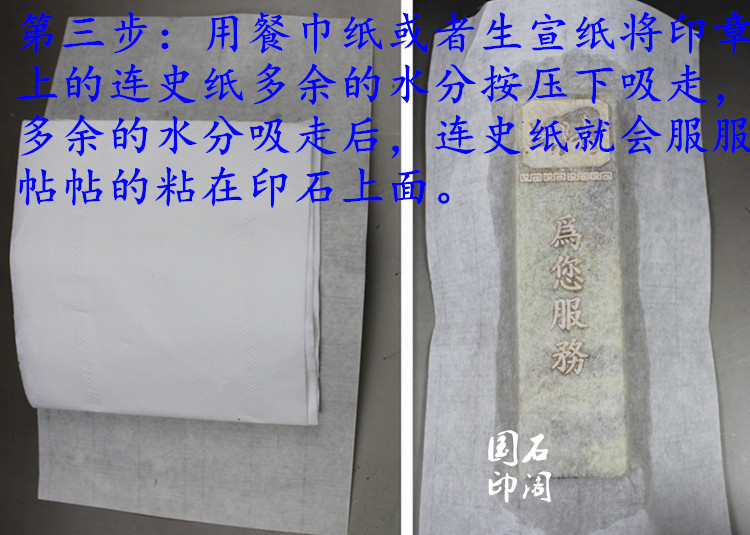 第三步：用餐巾纸或者生宣纸将印章
上的连史纸多余的水分按压下吸走，
多余的水分吸走后，连史纸就会服服
帖帖的粘在印石上面。
為您服務
国石
印阁